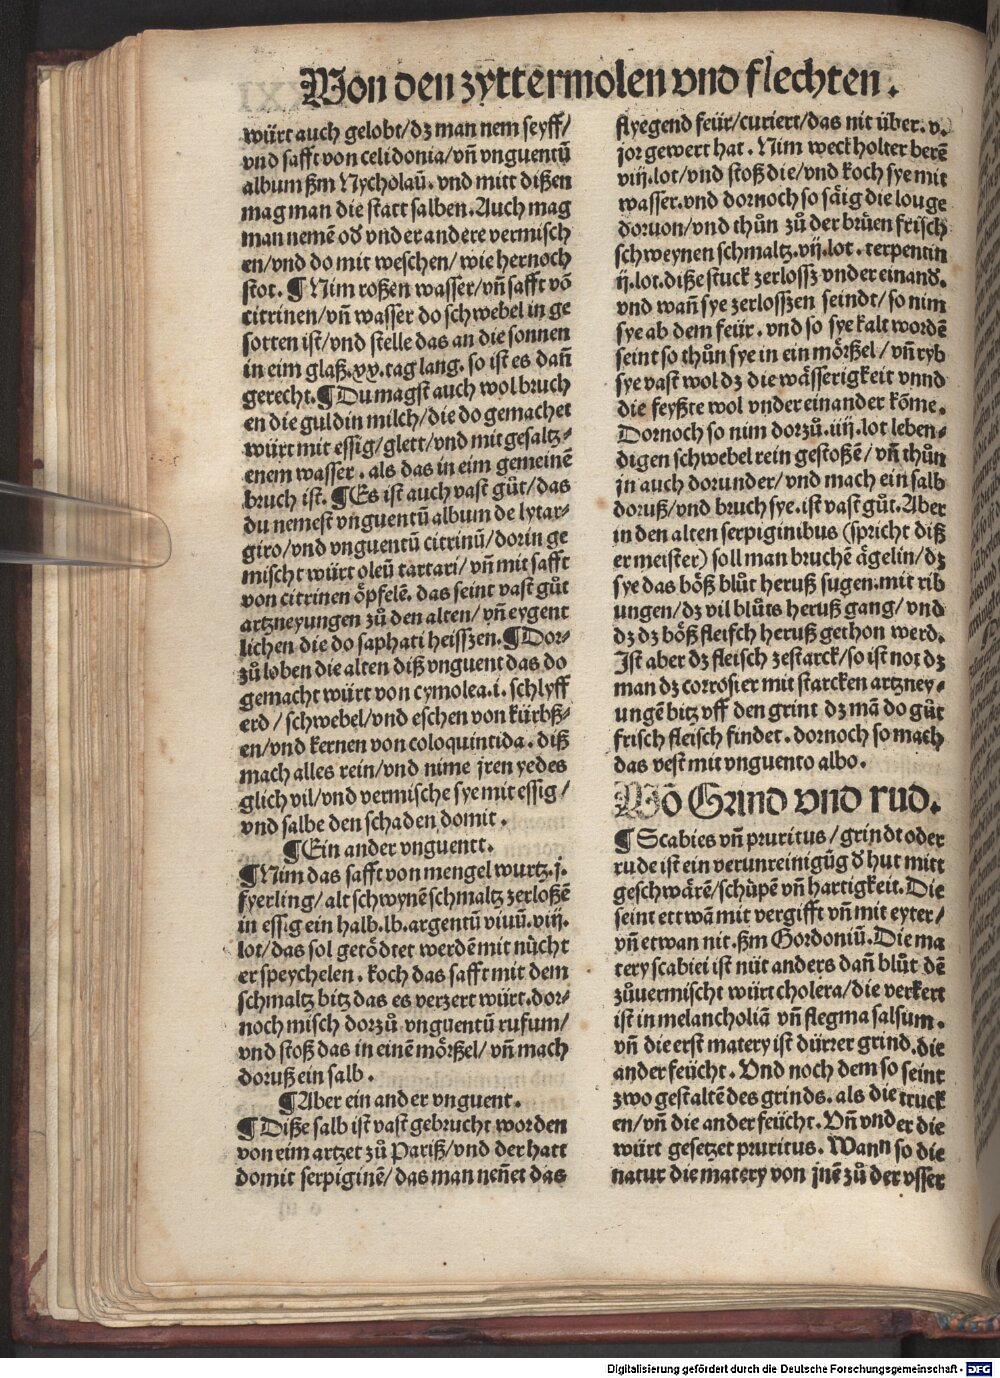 Von den zyttermolen vnd flechten.
würt auch gelobt/dz man nem seyff/
vnd safft von celidonia/vñ vnguentū
album ßm Nycholaū. vnd mitt dißen
mag man die statt salben. Auch mag
man nemē od vnder andere vermisch
en/vnd do mit weschen/ wie hernoch
stot. ¶ Nim roßen wasser/vñ safft vō
citrinen/vñ wasser do schwebel in ge
sotten ist/vnd stelle das an die sonnen
in eim glaß.xx.tag lang. so ist es dañ
gerecht.¶ Du magst auch wol bruch
en die guldin milch/die do gemachet
würt mit essig/glett/vnd mit gesaltz-
enem wasser. als das in eim gemeinē
bruch ist. ¶ Es ist auch vast gůt/das
du nemest vnguentū album de lytar-
giro/vnd vnguentū citrinū/dorin ge
mischt würt oleū tartari/vñ mit safft
von citrinen öpfelē. das seint vast gůt
artzneyungen zů den alten/vñ eygent
lichen die do saphati heisszen.¶ Dor-
zů loben die alten diß vnguent das do
gemacht würt von cymolea.i. schlyff
erd/ schwebel/vnd eschen von kürbß-
en/vnd kernen von coloquintida. diß
mach alles rein/vnd nime jren yedes
glich vil/vnd vermische sye mit essig/
vnd salbe den schaden domit.
¶ Ein ander vnguentt.
¶ Nim das safft von mengel wurtz.j.
fyerling/alt schwynē schmaltz zerloßē
in essig ein halb.lb.argentū viuū.viij.
lot/das sol getödtet werdē mit nücht
er speychelen. koch das safft mit dem
schmaltz bitz das es verzert würt.dor-
noch misch dorzů vnguentū rufum/
vnd stoß das in einē mörßel/vñ mach
doruß ein salb.
¶ Aber ein ander vnguent.
¶ Diße salb ist vast gebrucht worden
von eim artzet zů Pariß/vnd der hatt
domit serpiginē/das man nenet das
flyegend feür/curiert/das nit über.v.
jor gewert hat. Nim weckholter berē
viij.lot/vnd stoß die/vnd koch sye mit
wasser.vnd dornoch so säig die louge
doruon/vnd thůn zů der brüen frisch
schweynen schmaltz.vij.lot. terpentin
ij.lot.diße stuck zerlossz vnder einand.
vnd wañ sye zerlosszen seindt/so nim
sye ab dem feür. vnd so sye kalt wordē
seint so thůn sye in ein mörßel/vñ ryb
sye vast wol dz die wässerigkeit vnnd
die feyßte wol vnder einander kōme.
Dornoch so nim dorzů.iiij.lot leben-
digen schwebel rein gestoßē/vñ thůn
jn auch dorunder/vnd mach ein salb
doruß/vnd bruch sye.ist vast gůt.Aber
in den alten serpiginibus (spricht diß
er meister) soll man bruchē ägelin/dz
sye das böß blůt heruß sugen.mit rib
ungen/dz vil blůts heruß gang/vnd
dz dz böß fleisch heruß gethon werd.
Ist aber dz fleisch ze starck/so ist not dz
man dz corrosier mit starcken artzney-
ungē bitz vff den grint dz mā do gůt
frisch fleisch findet. dornoch so mach
das vest mit vnguento albo.
Vō Grind vnd rud.
¶ Scabies vñ pruritus/grindt oder
rude ist ein verunreinigūg d hut mitt
geschwärē/schüpē vñ hartigkeit. Die
seint ettwā mit vergifft vñ mit eyter/
vñ etwan nit. ßm Gordoniū. Die ma
tery scabiei ist nüt anders dañ blůt dē
zůuermischt würt cholera/die verkert
ist in melancholiā vñ flegma salsum.
vñ die erst matery ist dürrer grind.die
ander feücht. Vnd noch dem so seint
zwo gestaltē des grinds. als die truck
en/vñ die ander feücht. Vñ vnder die
würt gesetzet pruritus. Wann so die
natur die matery von jnē zů der vsser
Digitalisierung gefördert durch die Deutsche Forschungsgemeinschaft - DFG